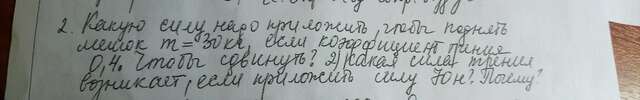 2. Какую силу надо приложить, чтобы поднять
мешок m = 30кг, если коэффициент трения
0,4. Чтобы сдвинуть? 2) Какая сила трения
возникает, если приложить силу 70н? Почему?